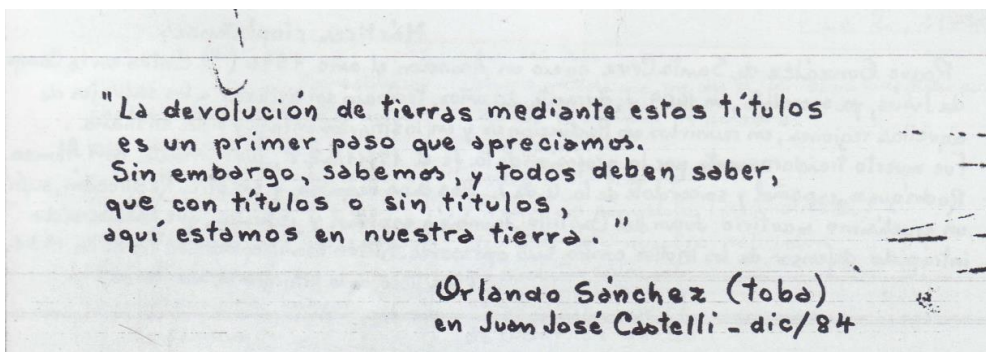 "La devolución de tierras mediante estos títulos
es un primer paso que apreciamos.
Sin embargo, sabemos, y todos deben saber,
que con títulos o sin títulos,
aquí estamos en nuestra tierra."
Orlando Sánchez (toba)
en Juan José Castelli - dic/84